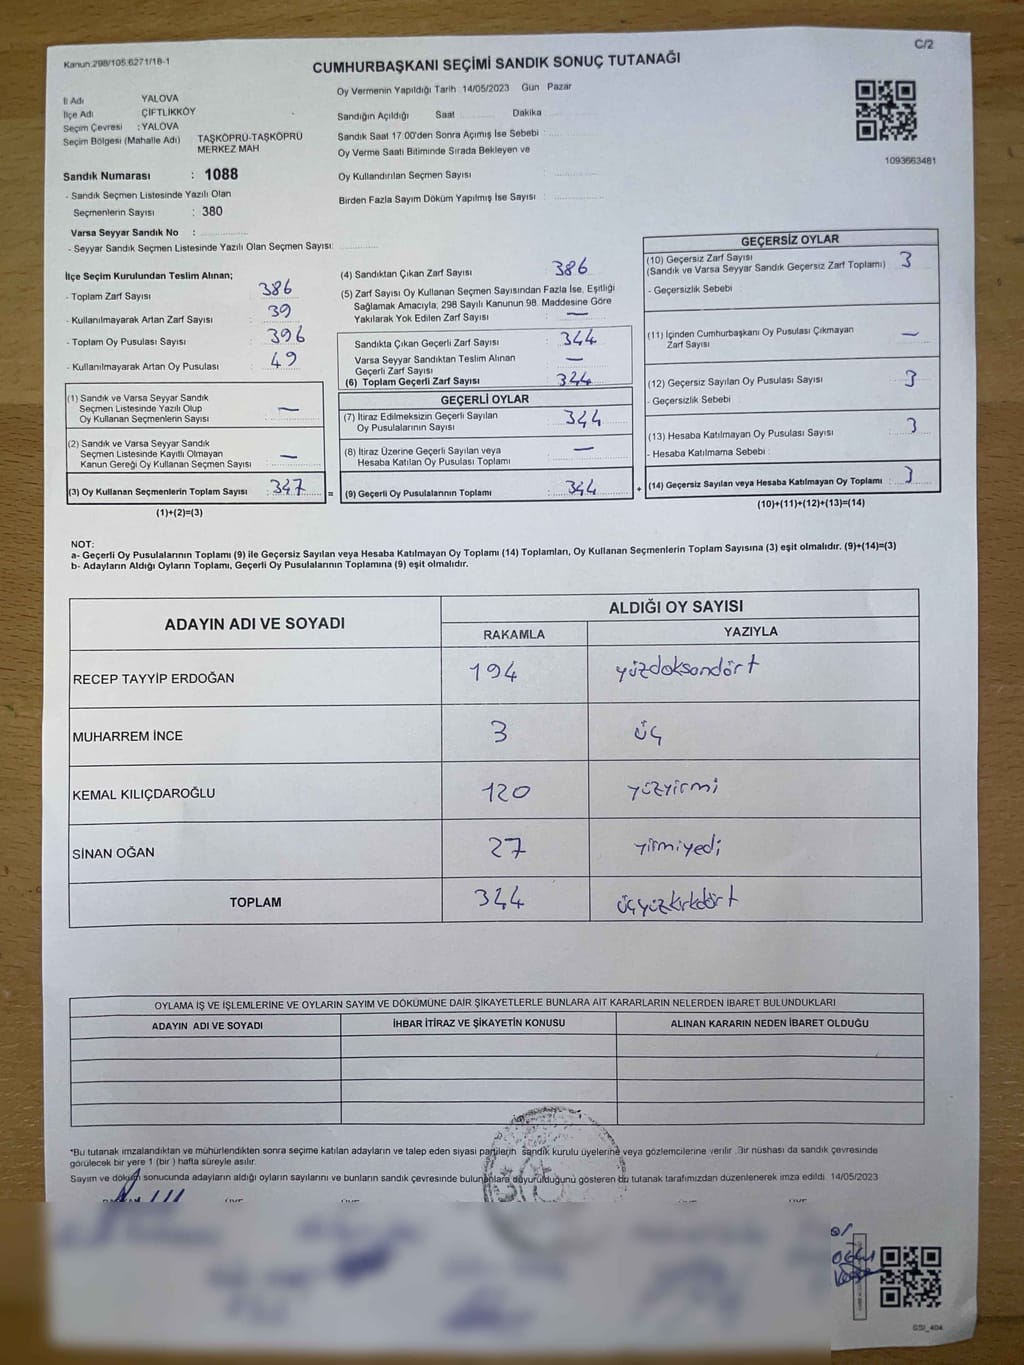 C/2
Kanun.298/105.6271/18-1
CUMHURBAŞKANI SEÇİMİ SANDIK SONUÇ TUTANAĞI
İl Adı YALOVA
İlçe Adı ÇİFTLİKKÖY
Seçim Çevresi : YALOVA
Seçim Bölgesi (Mahalle Adı) TAŞKÖPRÜ-TAŞKÖPRÜ
MERKEZ MAH
Sandık Numarası : 1088
- Sandık Seçmen Listesinde Yazılı Olan
Seçmenlerin Sayısı : 380
Varsa Seyyar Sandık No :
- Seyyar Sandık Seçmen Listesinde Yazılı Olan Seçmen Sayısı:
Oy Vermenin Yapıldığı Tarih 14/05/2023 Gün Pazar
Sandığın Açıldığı Saat Dakika
Sandık Saat 17.00'den Sonra Açımış İse Sebebi :
Oy Verme Saati Bitiminde Sırada Bekleyen ve
Oy Kullandırılan Seçmen Sayısı
Birden Fazla Sayım Döküm Yapılmış İse Sayısı :
1093663481
İlçe Seçim Kurulundan Teslim Alınan;
- Toplam Zarf Sayısı 386
- Kullanılmayarak Artan Zarf Sayısı 39
- Toplam Oy Pusulası Sayısı 396
- Kullanılmayarak Artan Oy Pusulası 49
(1) Sandık ve Varsa Seyyar Sandık
Seçmen Listesinde Yazılı Olup
Oy Kullanan Seçmenlerin Sayısı —
(2) Sandık ve Varsa Seyyar Sandık
Seçmen Listesinde Kayıtlı Olmayan
Kanun Gereği Oy Kullanan Seçmen Sayısı —
(3) Oy Kullanan Seçmenlerin Toplam Sayısı : 347 =
(1)+(2)=(3)
(4) Sandıktan Çıkan Zarf Sayısı 386
(5) Zarf Sayısı Oy Kullanan Seçmen Sayısından Fazla İse, Eşitliği
Sağlamak Amacıyla, 298 Sayılı Kanunun 98. Maddesine Göre
Yakılarak Yok Edilen Zarf Sayısı —
Sandıkta Çıkan Geçerli Zarf Sayısı 344
Varsa Seyyar Sandıktan Teslim Alınan
Geçerli Zarf Sayısı —
(6) Toplam Geçerli Zarf Sayısı 344
GEÇERLİ OYLAR
(7) İtiraz Edilmeksizin Geçerli Sayılan
Oy Pusulalarının Sayısı 344
(8) İtiraz Üzerine Geçerli Sayılan veya
Hesaba Katılan Oy Pusulası Toplamı —
(9) Geçerli Oy Pusulalarının Toplamı : 344 +
GEÇERSİZ OYLAR
(10) Geçersiz Zarf Sayısı
(Sandık ve Varsa Seyyar Sandık Geçersiz Zarf Toplamı) 3
- Geçersizlik Sebebi
(11) İçinden Cumhurbaşkanı Oy Pusulası Çıkmayan
Zarf Sayısı —
(12) Geçersiz Sayılan Oy Pusulası Sayısı 3
- Geçersizlik Sebebi
(13) Hesaba Katılmayan Oy Pusulası Sayısı 3
- Hesaba Katılmama Sebebi
(14) Geçersiz Sayılan veya Hesaba Katılmayan Oy Toplamı : 3
(10)+(11)+(12)+(13)=(14)
NOT:
a- Geçerli Oy Pusulalarının Toplamı (9) ile Geçersiz Sayılan veya Hesaba Katılmayan Oy Toplamı (14) Toplamları, Oy Kullanan Seçmenlerin Toplam Sayısına (3) eşit olmalıdır. (9)+(14)=(3)
b- Adayların Aldığı Oyların Toplamı, Geçerli Oy Pusulalarının Toplamına (9) eşit olmalıdır.
ADAYIN ADI VE SOYADI ALDIĞI OY SAYISI
RAKAMLA YAZIYLA
RECEP TAYYİP ERDOĞAN 194 yüzdoksandört
MUHARREM İNCE 3 üç
KEMAL KILIÇDAROĞLU 120 yüzyirmi
SİNAN OĞAN 27 yirmiyedi
TOPLAM 344 üçyüzkırkdört
OYLAMA İŞ VE İŞLEMLERİNE VE OYLARIN SAYIM VE DÖKÜMÜNE DAİR ŞİKAYETLERLE BUNLARA AİT KARARLARIN NELERDEN İBARET BULUNDUKLARI
ADAYIN ADI VE SOYADI İHBAR İTİRAZ VE ŞİKAYETİN KONUSU ALINAN KARARIN NEDEN İBARET OLDUĞU
*Bu tutanak imzalandıktan ve mühürlendikten sonra seçime katılan adayların ve talep eden siyasi partilerin sandık kurulu üyelerine veya gözlemcilerine verilir. Bir nüshası da sandık çevresinde
görülecek bir yere 1 (bir) hafta süreyle asılır.
Sayım ve döküm sonucunda adayların aldığı oyların sayılarını ve bunların sandık çevresinde bulunanlara duyurulduğunu gösteren bu tutanak tarafımızdan düzenlenerek imza edildi. 14/05/2023
GSI_404